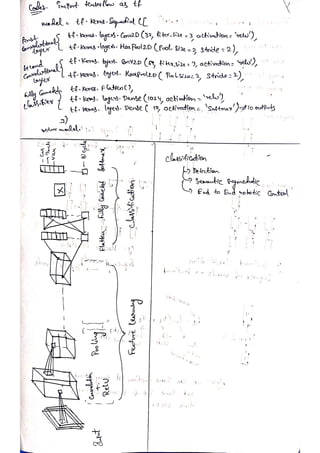 Code:- import tensorflow as tf
model = tf.keras.Sequential ([
First Convolutional Layer
tf.keras.layers.Conv2D (32, filter_size = 3, activation = 'relu'),
tf.keras.layers.MaxPool2D (pool_size = 2, stride = 2),
Second Convolutional Layer
tf.keras.layers.Conv2D (64, filter_size = 3, activation = 'relu'),
tf.keras.layers.MaxPool2D (pool_size = 2, stride = 2),
Fully Connected Classifier
tf.keras.Flatten(),
tf.keras.layers.Dense (1024, activation = 'relu'),
tf.keras.layers.Dense (10, activation = 'Softmax') 10 outputs
])
return model
Classification
Detection
Semantic
End to End robotic Control
Car
Truck
Van
Bicycle
Input
Convolution + ReLU
Pooling
Feature learning
Flatten
Fully Connected
Softmax
Classification